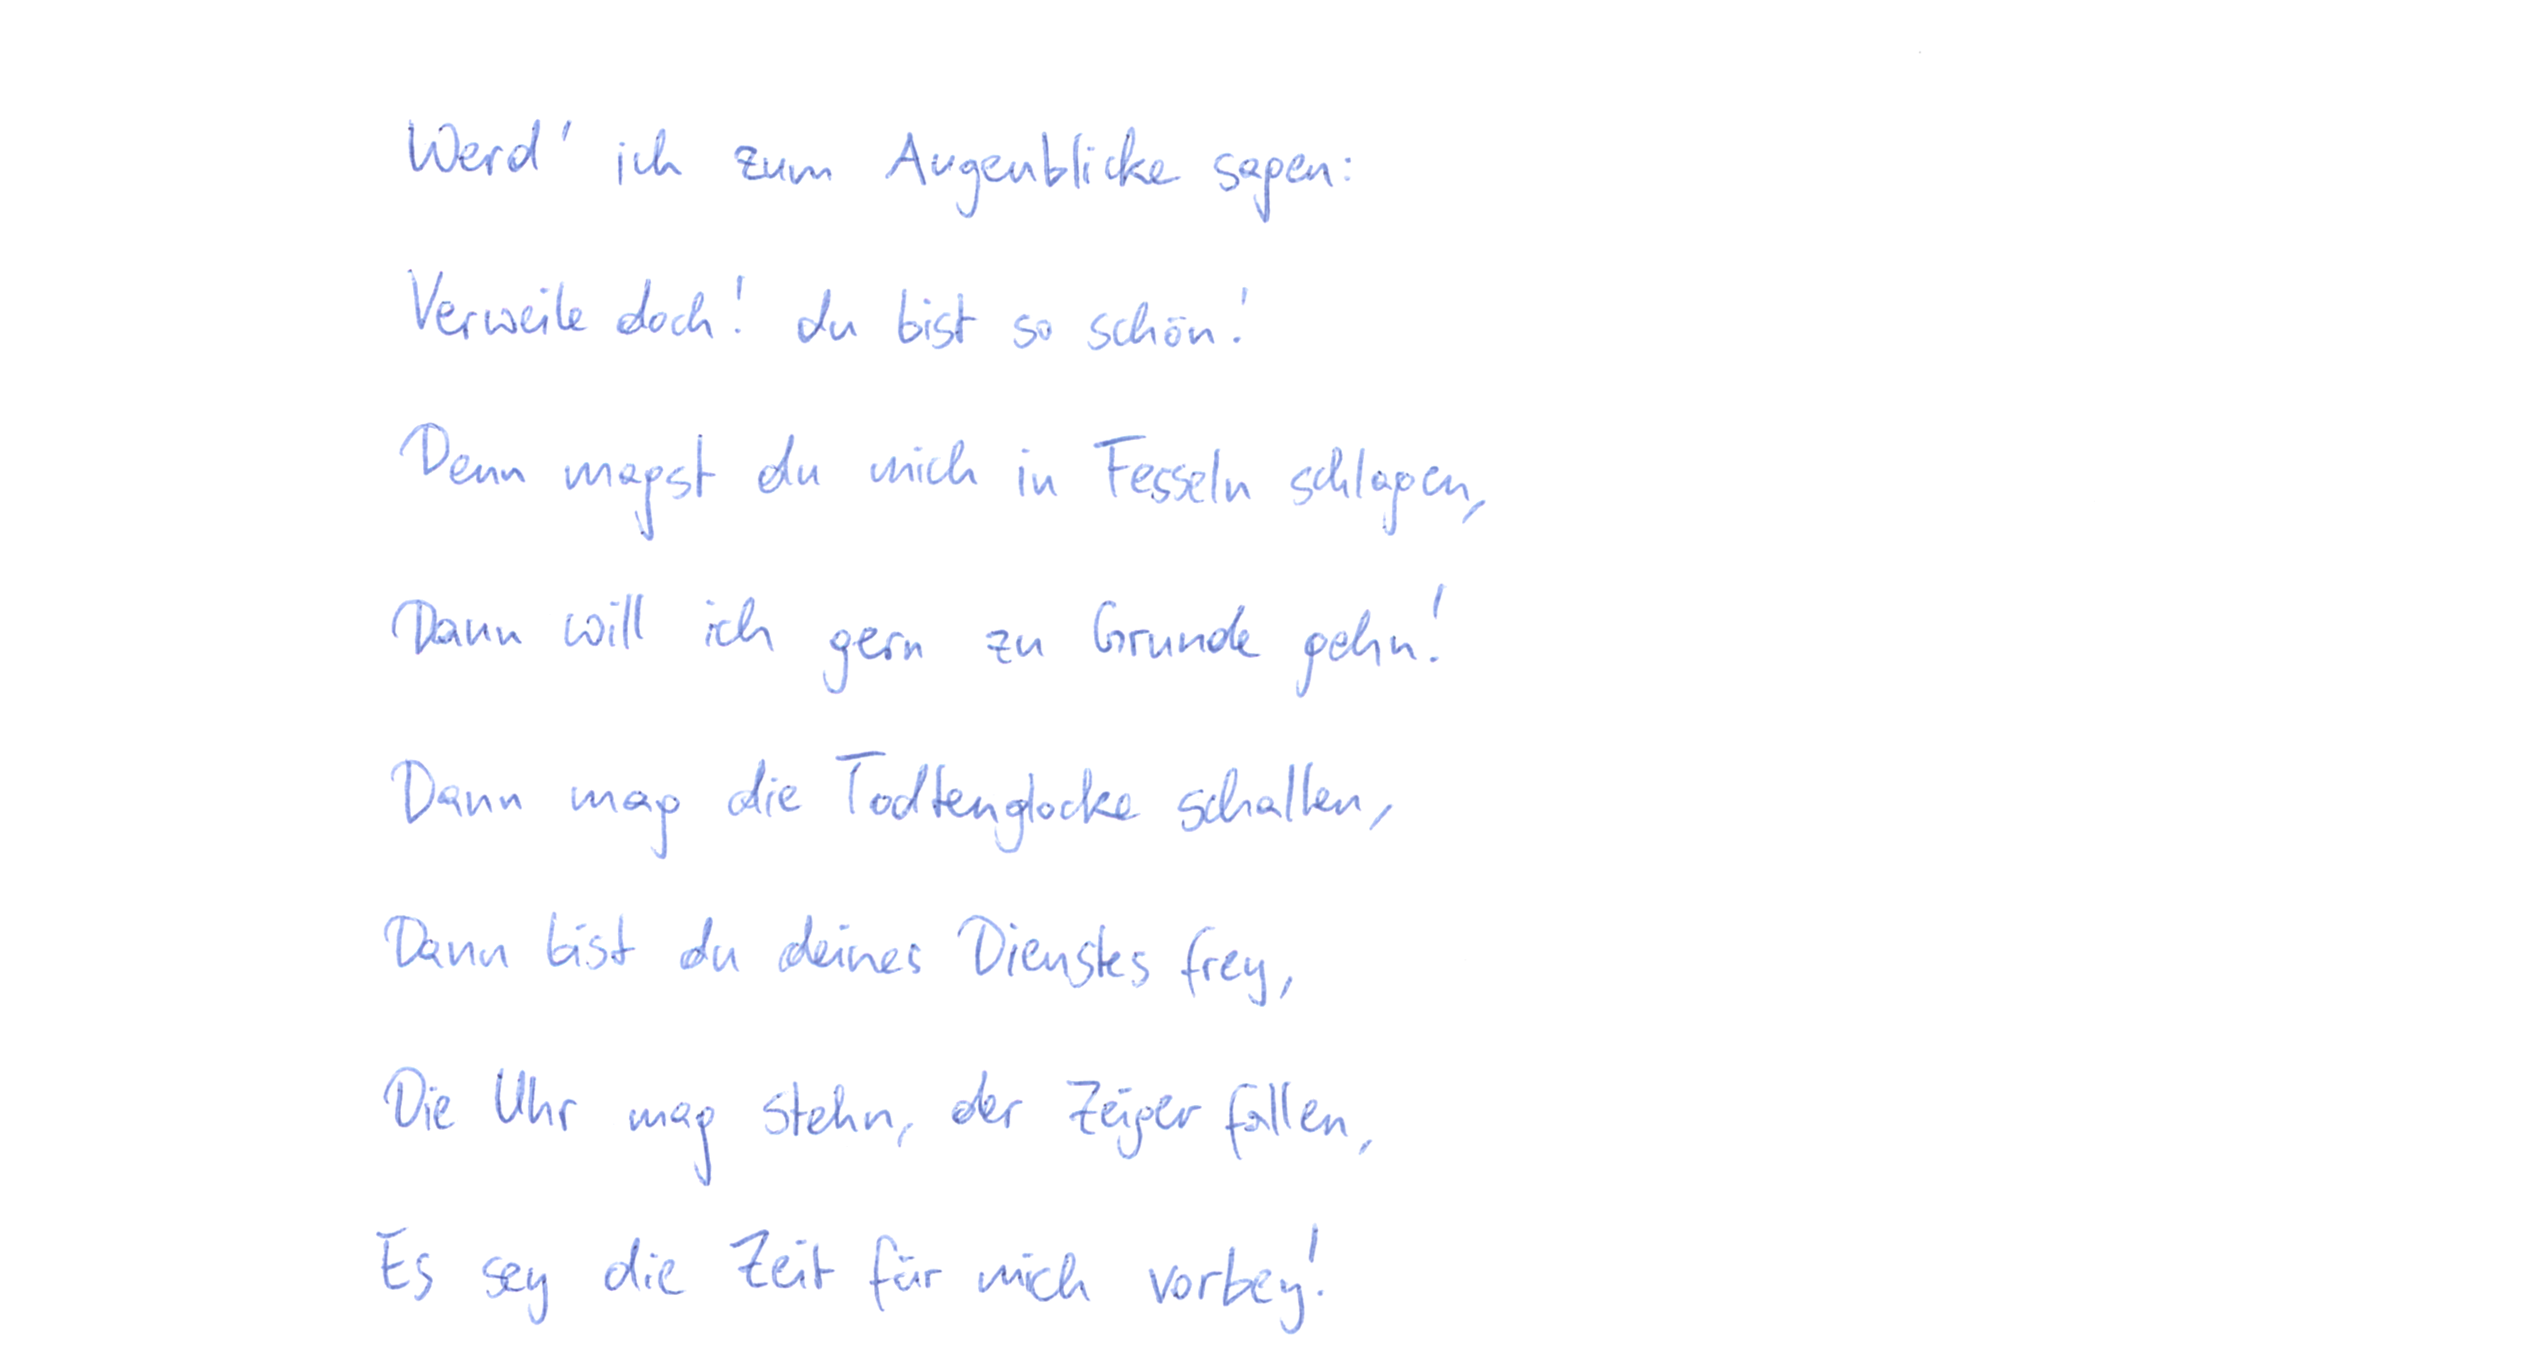 Werd' ich zum Augenblicke sagen:
Verweile doch! du bist so schön!
Denn magst du mich in Fesseln schlagen,
Dann will ich gern zu Grunde gehn!
Dann mag die Todtenglocke schallen,
Dann bist du deines Dienstes frey,
Die Uhr mag stehn, der Zeiger fallen,
Es sey die Zeit für mich vorbey!